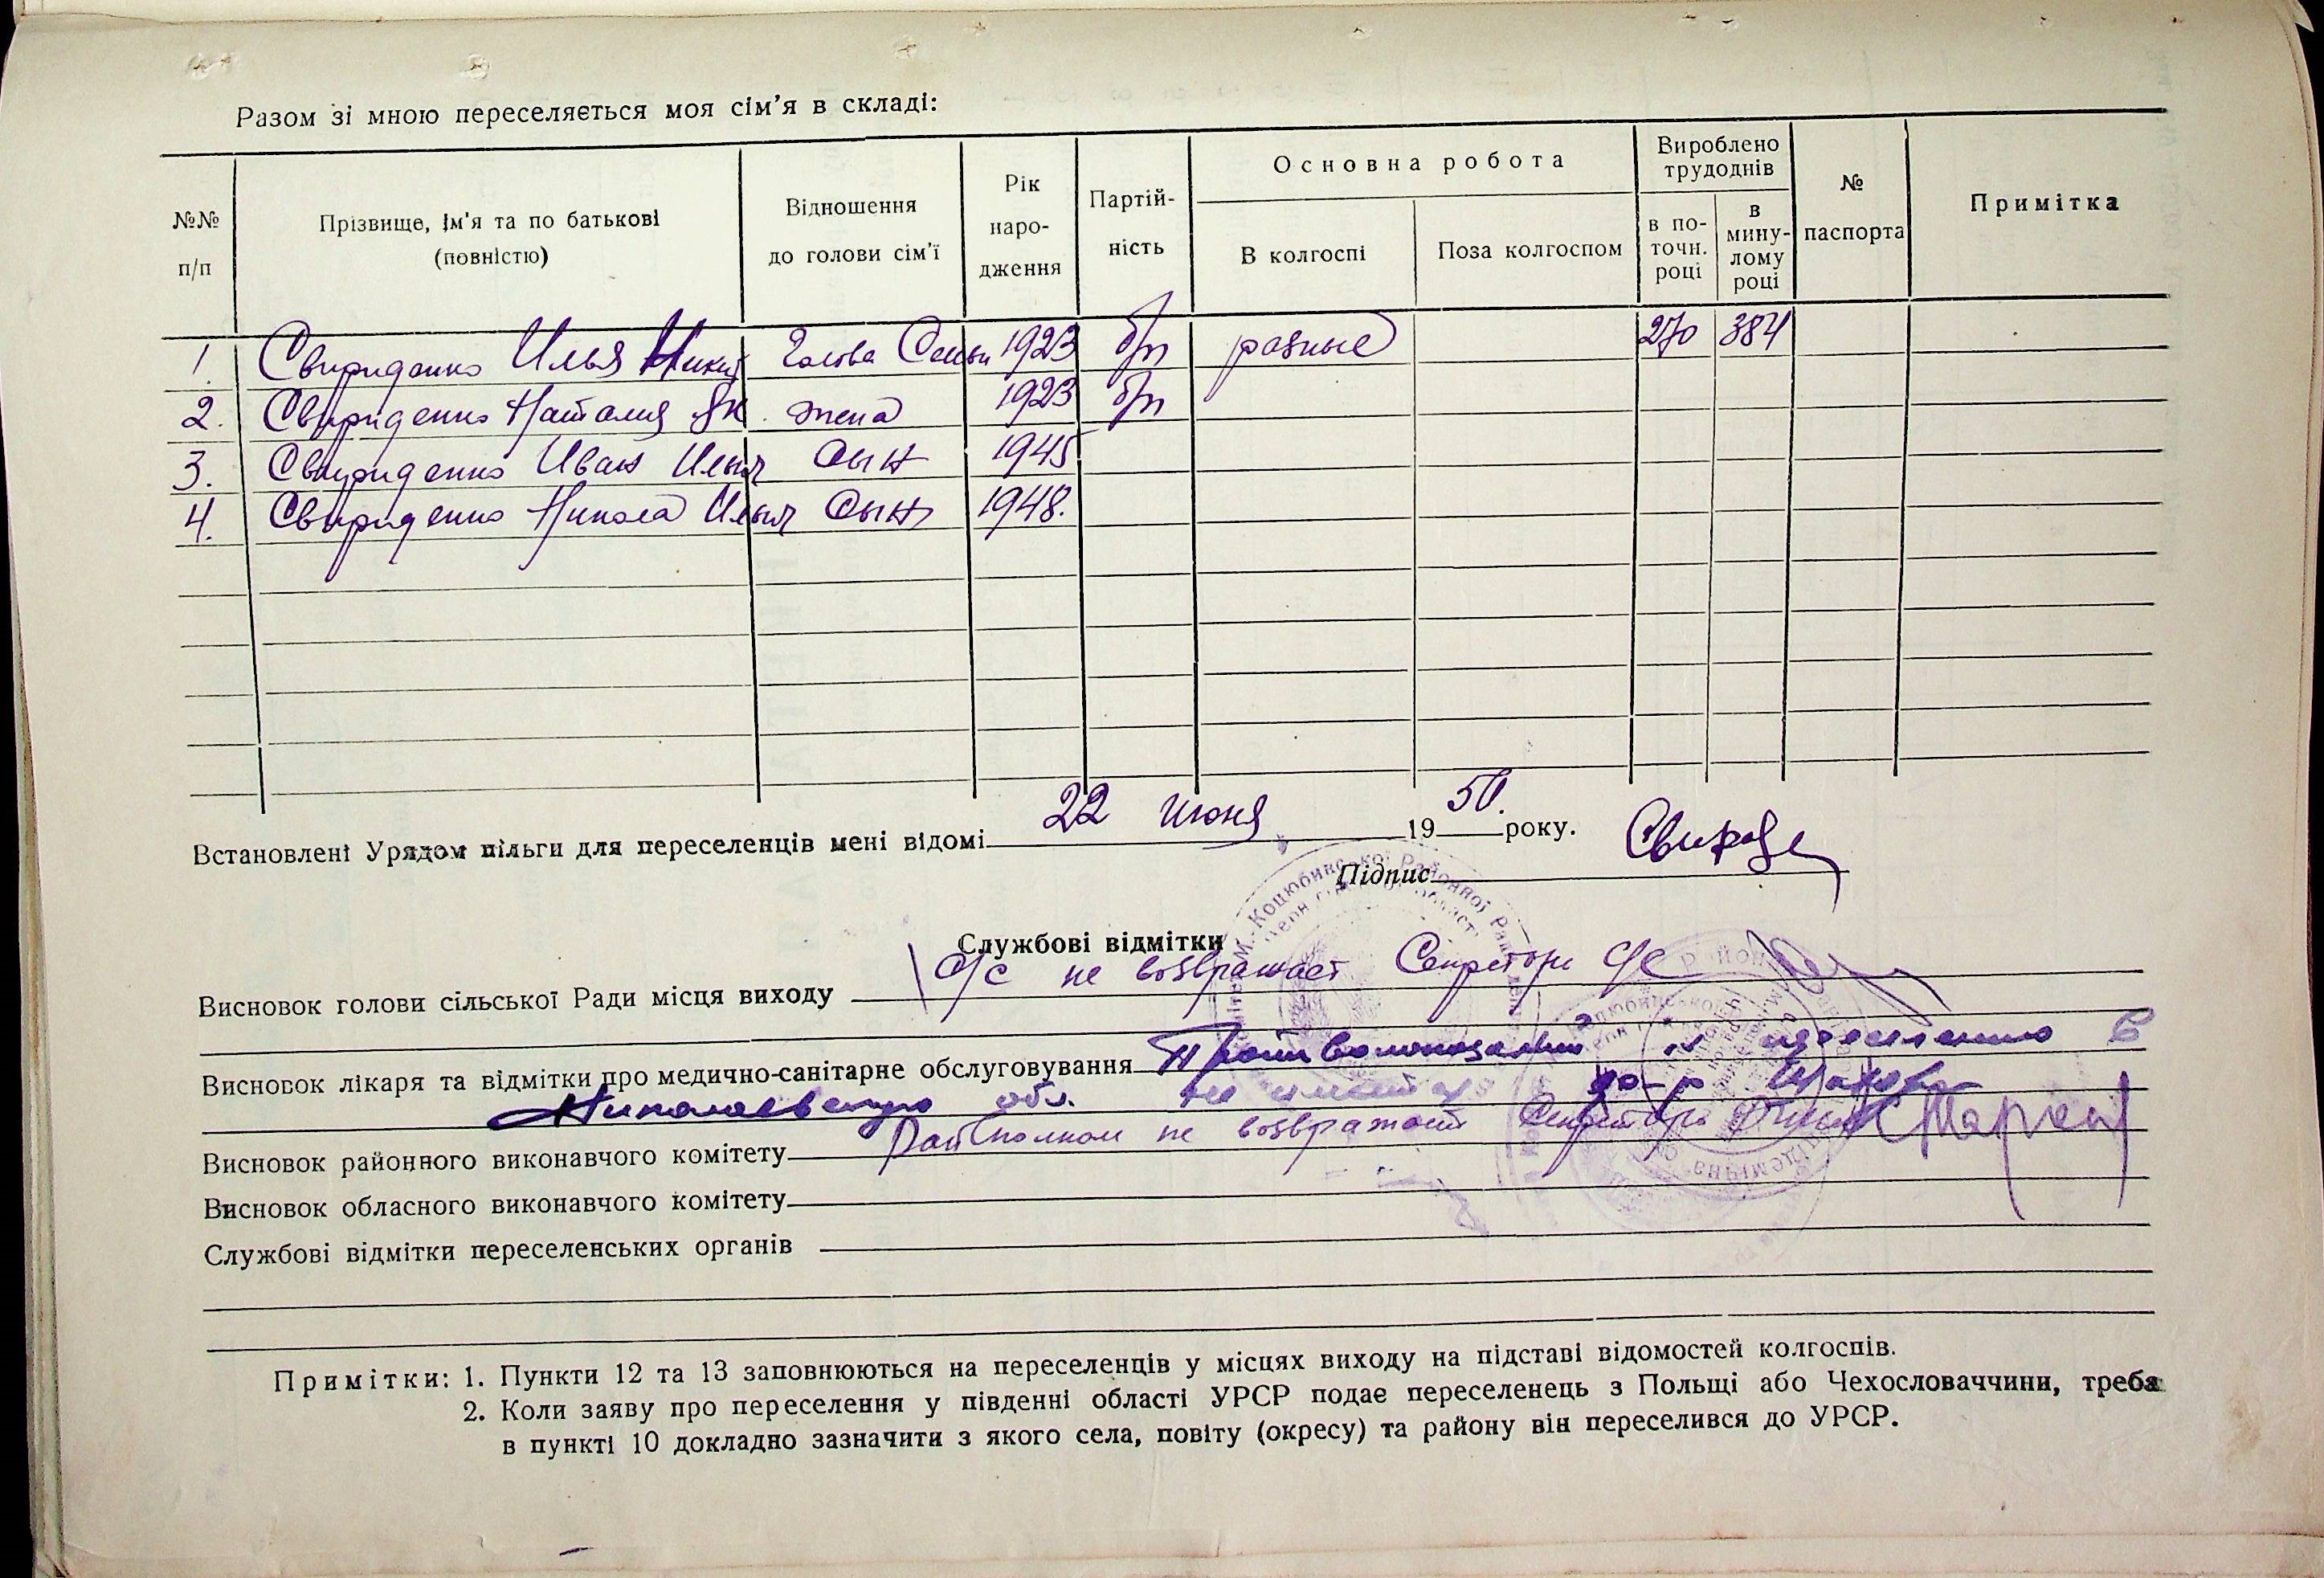 Разом зі мною переселяється моя сім'я в складі:
№№ п/п
Прізвище, ім'я та по батькові (повністю)
Відношення до голови сім'ї
Рік народження
Партійність
Основна робота
В колгоспі
Поза колгоспом
Вироблено трудоднів
в поточн. році
в минулому році
№ паспорта
Примітка
1. Свириденко Илья Никит Голова Семьи 1923 б/п разные 270 384
2. Свириденко Наталия Як. жена 1923 б/п
3. Свириденко Иван Ильич Сын 1945
4. Свириденко Никола Ильич Сын 1948.
Встановлені Урядом пільги для переселенців мені відомі 22 июня 1950. року.
Підпис
Службові відмітки
Висновок голови сільської Ради місця виходу с/с не возвражает Секретарь с/с
Висновок лікаря та відмітки про медично-санітарне обслуговування Противопоказаний к переселению в
Николаевскую обл. не имеется до-р
Висновок районного виконавчого комітету Райисполком не возвражает Секретарь
Висновок обласного виконавчого комітету
Службові відмітки переселенських органів
Примітки: 1. Пункти 12 та 13 заповнюються на переселенців у місцях виходу на підставі відомостей колгоспів.
2. Коли заяву про переселення у південні області УРСР подає переселенець з Польщі або Чехословаччини, треба
в пункті 10 докладно зазначити з якого села, повіту (окресу) та району він переселився до УРСР.